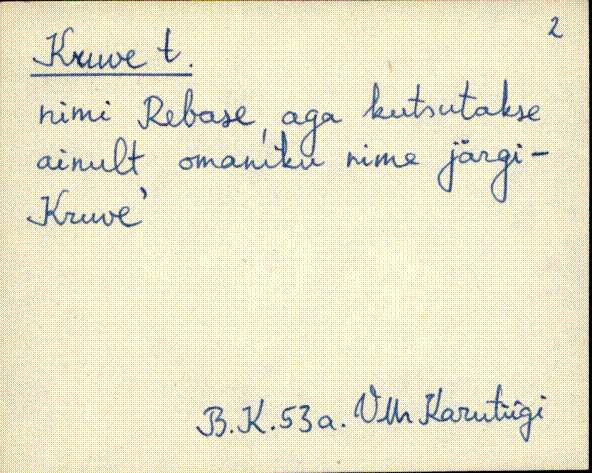 2
Kruve t.
nimi Rebase, aga kutsutakse
ainult omaniku nime järgi-
Kruve`
B.K. 53a. VMr Karutiigi